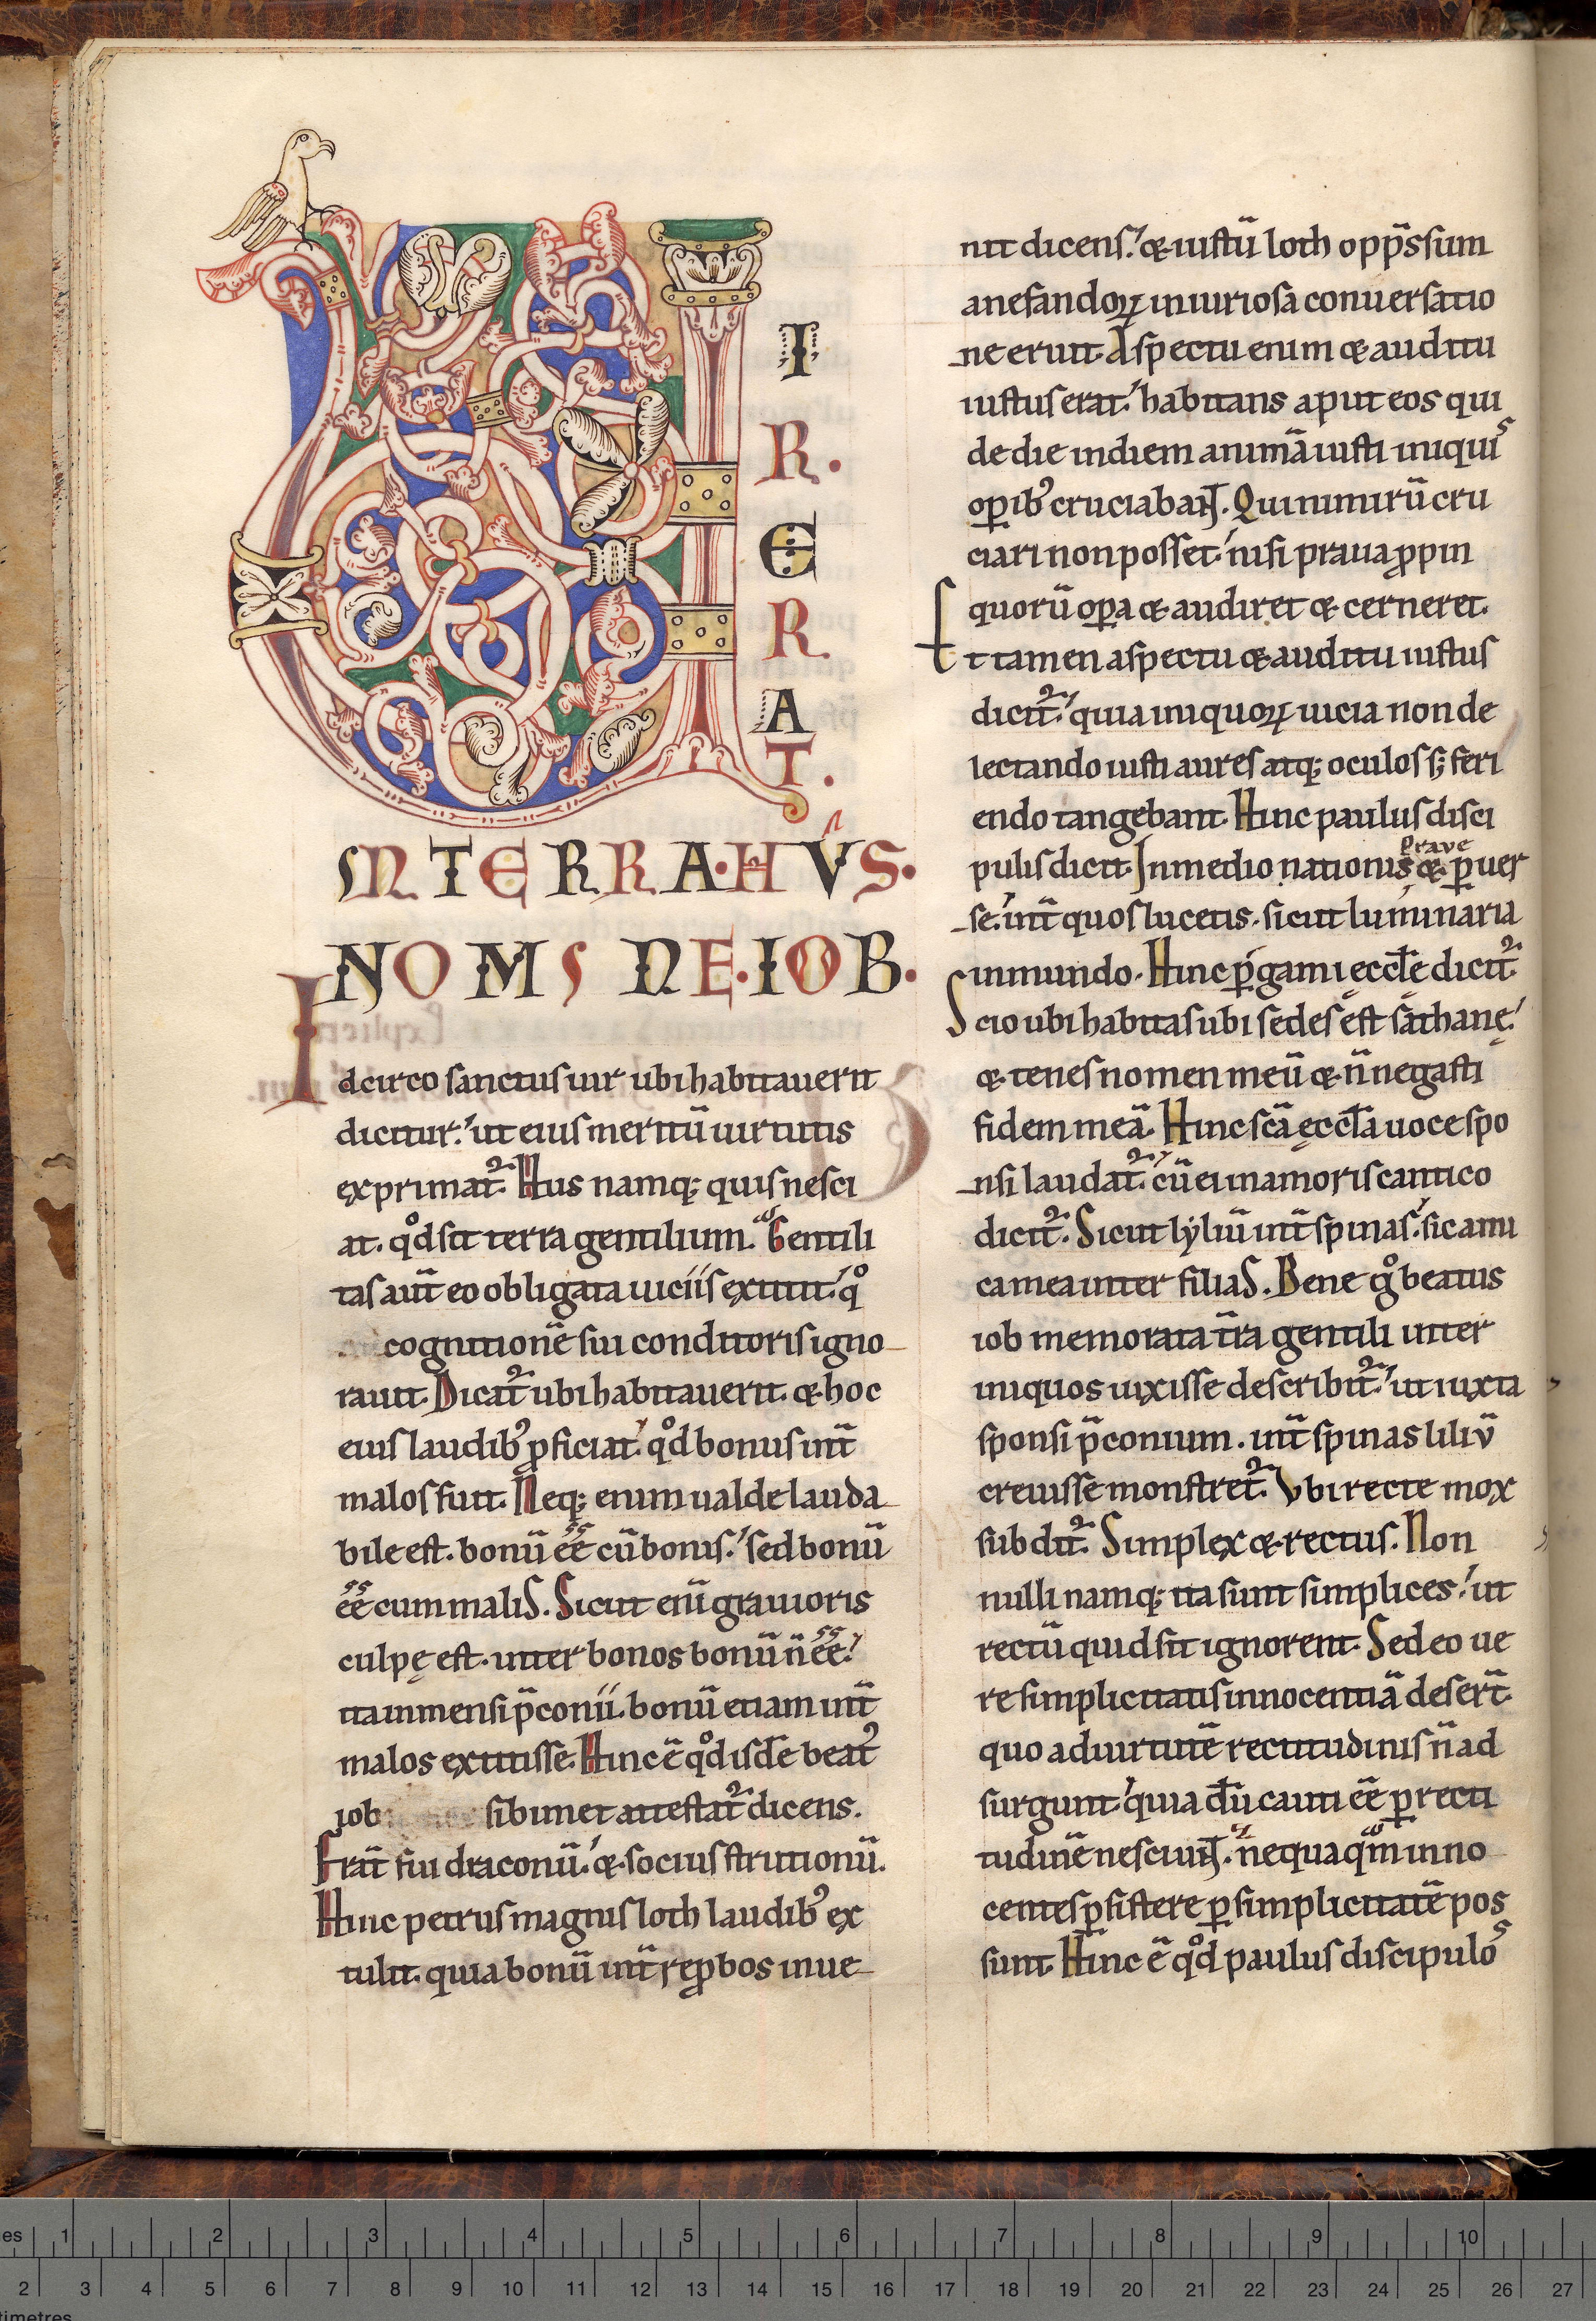 V
I
R.
E
R.
A
T.
IN TERRA·HVS·
NOMINE·IOB·
Idcirco sanctus uir ubi habitauerit
dicitur: ut eius meritū uirtutis
exprimat᷑. Hus namq; quis nesci
at. qͦd sit terra gentilium. Gentili
tas aut̄ eo obligata uiciis extitit. qͦ
cognitionē sui conditoris igno
rauit. Dicat᷑ ubi habitauerit. & hoc
eius laudibꝰ ꝓficiat. qͦd bonus int̄
malos fuit. Neq; enim ualde lauda
bile est. bonū ēē cū bonis: sed bonū
ēē cum malis. Sicut eni̅ grauioris
culpę est. inter bonos bonū n̄ ēē:
ita inmensi p̄conii. bonū etiam int̄
malos extitisse. Hinc ē qͦd isdē beatꝰ
iob sibimet attestat᷑ dicens.
Frat̄ fui draconū: & socius strutionū.
Hinc petrus magnis loth laudibꝰ ex
tulit. quia bonū int̄ reꝓbos inue
nit dicens: & iustū loth opp̄ssum
a nefandoꝝ iniuriosa conuersatio
ne eruit. Aspectu enim & auditu
iustus erat: habitans aput eos qui
de die in diem animā iusti iniquis
oꝑibꝰ cruciabaNT. Qui nimirū cru
ciari non posset: nisi praua ꝓpin
quorū oꝑa & audiret & cerneret.
Et tamen aspectu & auditu iustus
dicit᷑: quia iniquoꝝ uicia non de
lectando iusti aures atq; oculos s; feri
endo tangebant. Hinc paulus disci
pulis dicit. In medio nationis
praue
& ꝑuer
se. int̄ quos lucetis. sicut luminaria
in mundo. Hinc ꝑgami ecclē dicit᷑.
Scio ubi habitas ubi sedes est sathanę:
& tenes nomen meū & n̄ negasti
fidem meā. Hinc scā ęccla uoce spo
nsi laudat᷑. cū ei in amoris cantico
dicit᷑. Sicut lyliū int̄ spinas: sic ami
ca mea inter filias. Bene gͦ beatus
iob memorata tr̄a gentili inter
iniquos uixisse describit᷑: ut iuxta
sponsi p̄conium. int̄ spinas liliv̄
creuisse monstret᷑. Vbi recte mox
subdit᷑. Simplex & rectus. Non
nulli namq; ita sunt simplices: ut
rectū quid sit ignorent. Sed eo ue
re simplicitatis innocentiā desert̄.
quo ad uirtutē rectitudinis n̄ ad
surgunt: quia dū cauti ēē ꝑ recti
tudinē nesciuNT. nequaq̄m inno
centes ꝑsistere ꝑ simplicitatē pos
sunt. Hinc ē qͦd paulus discipulos